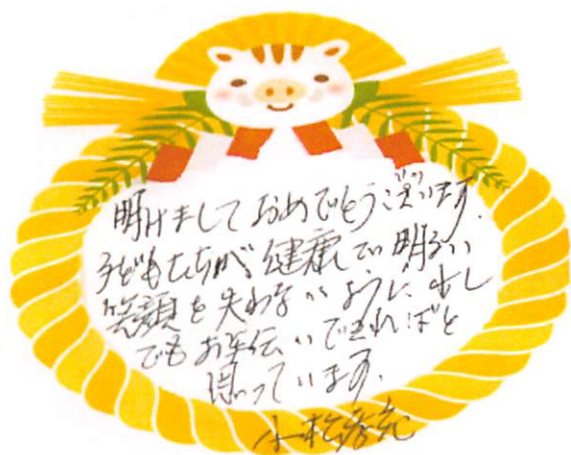 明けましておめでとうございます。
子どもたちが健康で明るい
笑顔を失わないように、少し
でもお手伝いできればと
思っています。
小松